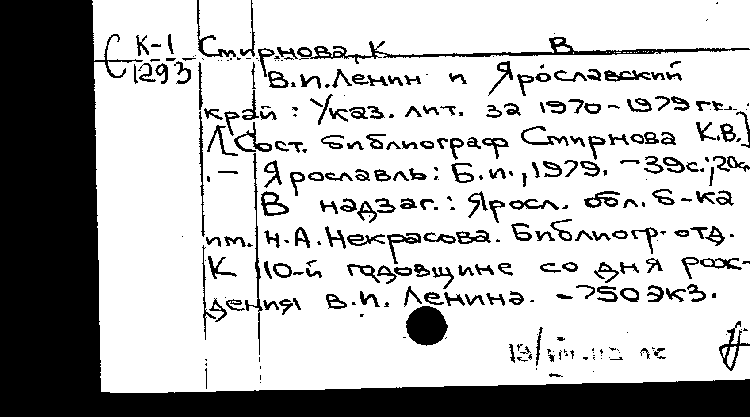 С К-1 Смирнова, К В
1293 В.И.Ленин и Ярославский
край: Указ. лит. за 1970-1979 гг.
/[Сост. библиограф Смирнова К.В.]
.- Ярославль: Б.и., 1979. -39с.; 20с
В надзаг.: Яросл. обл. б-ка
им. Н.А.Некрасова. Библиогр. отд.
К 110-й годовщине со дня рож-
дения В.И. Ленина. -750экз.